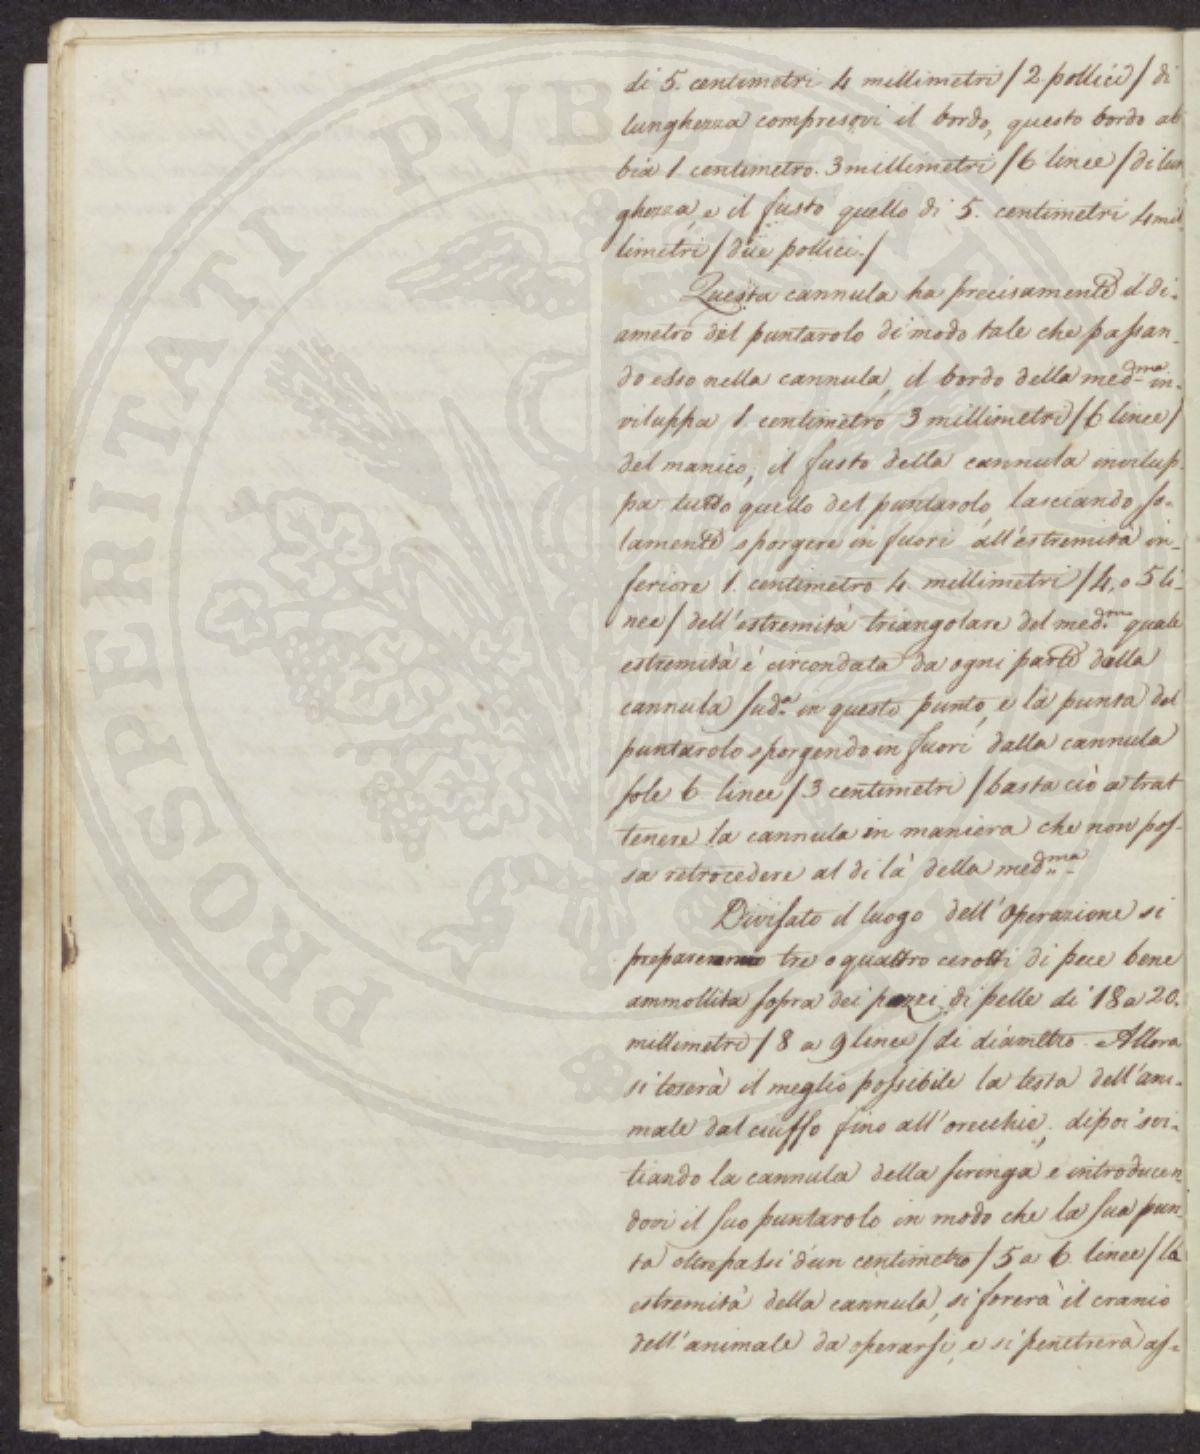 di 5. centimetri 4 millimetri / 2. pollici / di
lunghezza compresovi il bordo, questo bordo ab
bia 1. centimetro. 3 millimetri / 6 linee / di lun
ghezza, e il fusto quello di 5. centimetri 4 mil
limetri / due pollici. /
Questa cannula ha precisamente il di-
ametro del puntarolo di modo tale che passan-
do esso nella cannula, il bordo della med.ma in-
viluppa 1. centimetro 3 millimetri / 6 linee /
del manico, il fusto della cannula invilup-
pa tutto quello del puntarolo, lasciando so-
lamente sporgere in fuori all'estremità in-
feriore 1. centimetro 4. millimetri / 4, o 5 li-
nee / dell'estremità triangolare del med.mo quale
estremità è circondata da ogni parte dalla
cannula sud.a in questo punto, e la punta del
puntarolo sporgendo in fuori dalla cannula
sole 6. linee / 3 centimetri / basta ciò a trat
tenere la cannula in maniera che non pos-
sa retrocedere al di là della med.ma
Divisato il luogo dell'Operazione si
prepareranno tre o quattro cerotti di pece bene
ammollita sopra dei pezzi di pelle di 18 a 20.
millimetri / 8 a 9 linee / di diametro. Allora
si toserà il meglio possibile la testa dell'ani-
male dal ciuffo fino all'orecchie, dipoi svi-
tiando la cannula della siringa e introducen
dovi il suo puntarolo in modo che la sua pun-
ta oltrepassi d'un centimetro / 5 a 6. linee / la
estremità della cannula, si forerà il cranio
dell'animale da operarsi, e si penetrerà as-
PROSPERITATI PUBLICAE